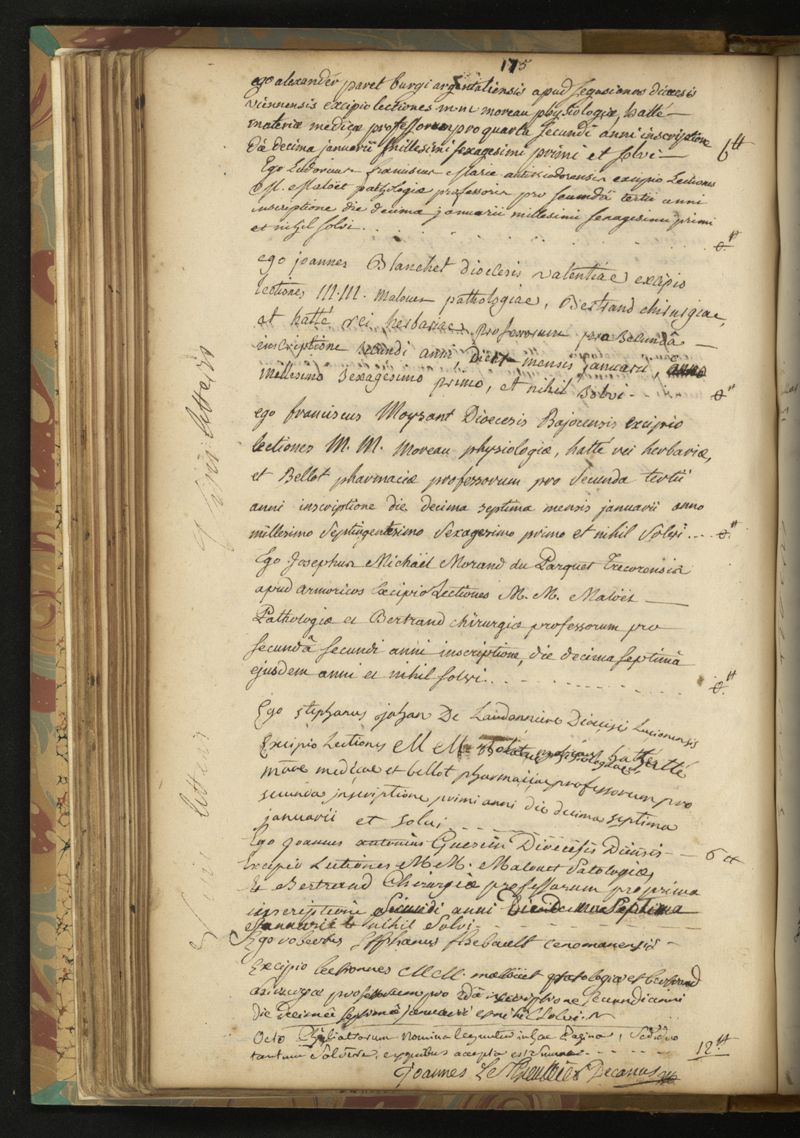 175
ego alexander paret burgi argentaliensis apud segusianos diœcesis
viennensis excipio lectiones m.m moreau physiologiæ, hatté —
materiæ medicæ professorum pro quarta secundi anni inscriptione
die decima januarii millesimi sexagesimi primi et solvi — 6ᵗᵗ
Ego Ludovicus franciscus Marie excipio Lectiones
M. Maloët pathologiæ professoris pro secundâ tertii anni
inscriptione die decima januarii millesimi sexagesimi primi
et nihil solvi . . . . . . . 0ᵗᵗ
ego joannes Blanchet diocesis valentiæ excipio
lectiones M.M. malouet pathologiae, Bertrand chirurgiae,
et hatté rei herbariæ professorum pro secundâ —
inscriptione secundi anni mensis januarii,
millesimo sexagesimo primo, et nihil solvi - - 0ᵗᵗ
ego franciscus Moysant Dioecesis Bajocensis excipio
lectiones M. M. Moreau physiologiæ, hatté rei herbariæ,
et Bellot pharmaciæ professorum pro secunda tertii
anni inscriptione die decima septima mensis januarii anno
millesimo septingentesimo sexagesimo primo et nihil solvi ... 0ᵗᵗ
Ego Josephus Michaël Morand du Parquet Trecorensis
apud armoricos Excipio Lectiones M. M. Maloët —
Pathologiæ et Bertrand chirurgiæ professorum pro
secundâ secundi anni inscriptione, die decima septimâ
ejusdem anni et nihil solvi . . - - - - - - 0ᵗᵗ
Ego stephanus johan De Diœcesis Lucionensis
Excipio Lectiones M M hatté
medicæ et bellot pharmaciæ professorum pro
secunda inscriptione primi anni die decima septima
januarii et solvi - - - - - - 6ᵗᵗ
Ego Joannes antonius Guerin Diœcesis Diensis —
Excipio Lectiones M. M. Malouet Patologiæ
Et Bertrand Chirurgiæ professorum pro prima
inscriptione secundi anni Die decima septima
januarii et nihil solvi - - - - -
Ego robertus stephanus thebault cenomanensis —
Excipio lectiones M.M. malouet patologiæ et bertrand
chirurgiæ professorum pro 2dâ inscriptione secundi anni
die decima septima januarii et nihil solvi.
Octo Philiatrorum nomina leguntur in hac Pagina,
tantum solvere, ex quibus accepta est summa - - - 12ᵗᵗ
Joannes Le Thieullier Decanus